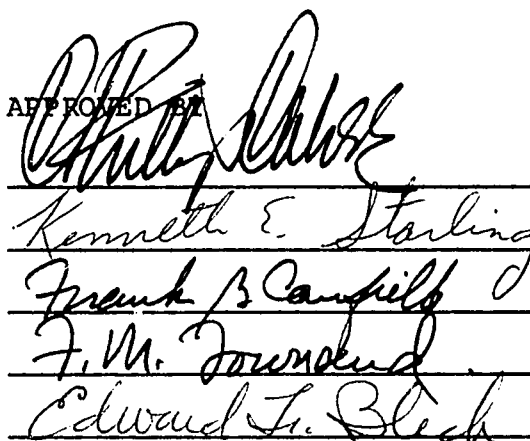 APPROVED BY
Kenneth E. Starling
Frank B Campbell
F. M. Townsend
Edward F. Blick